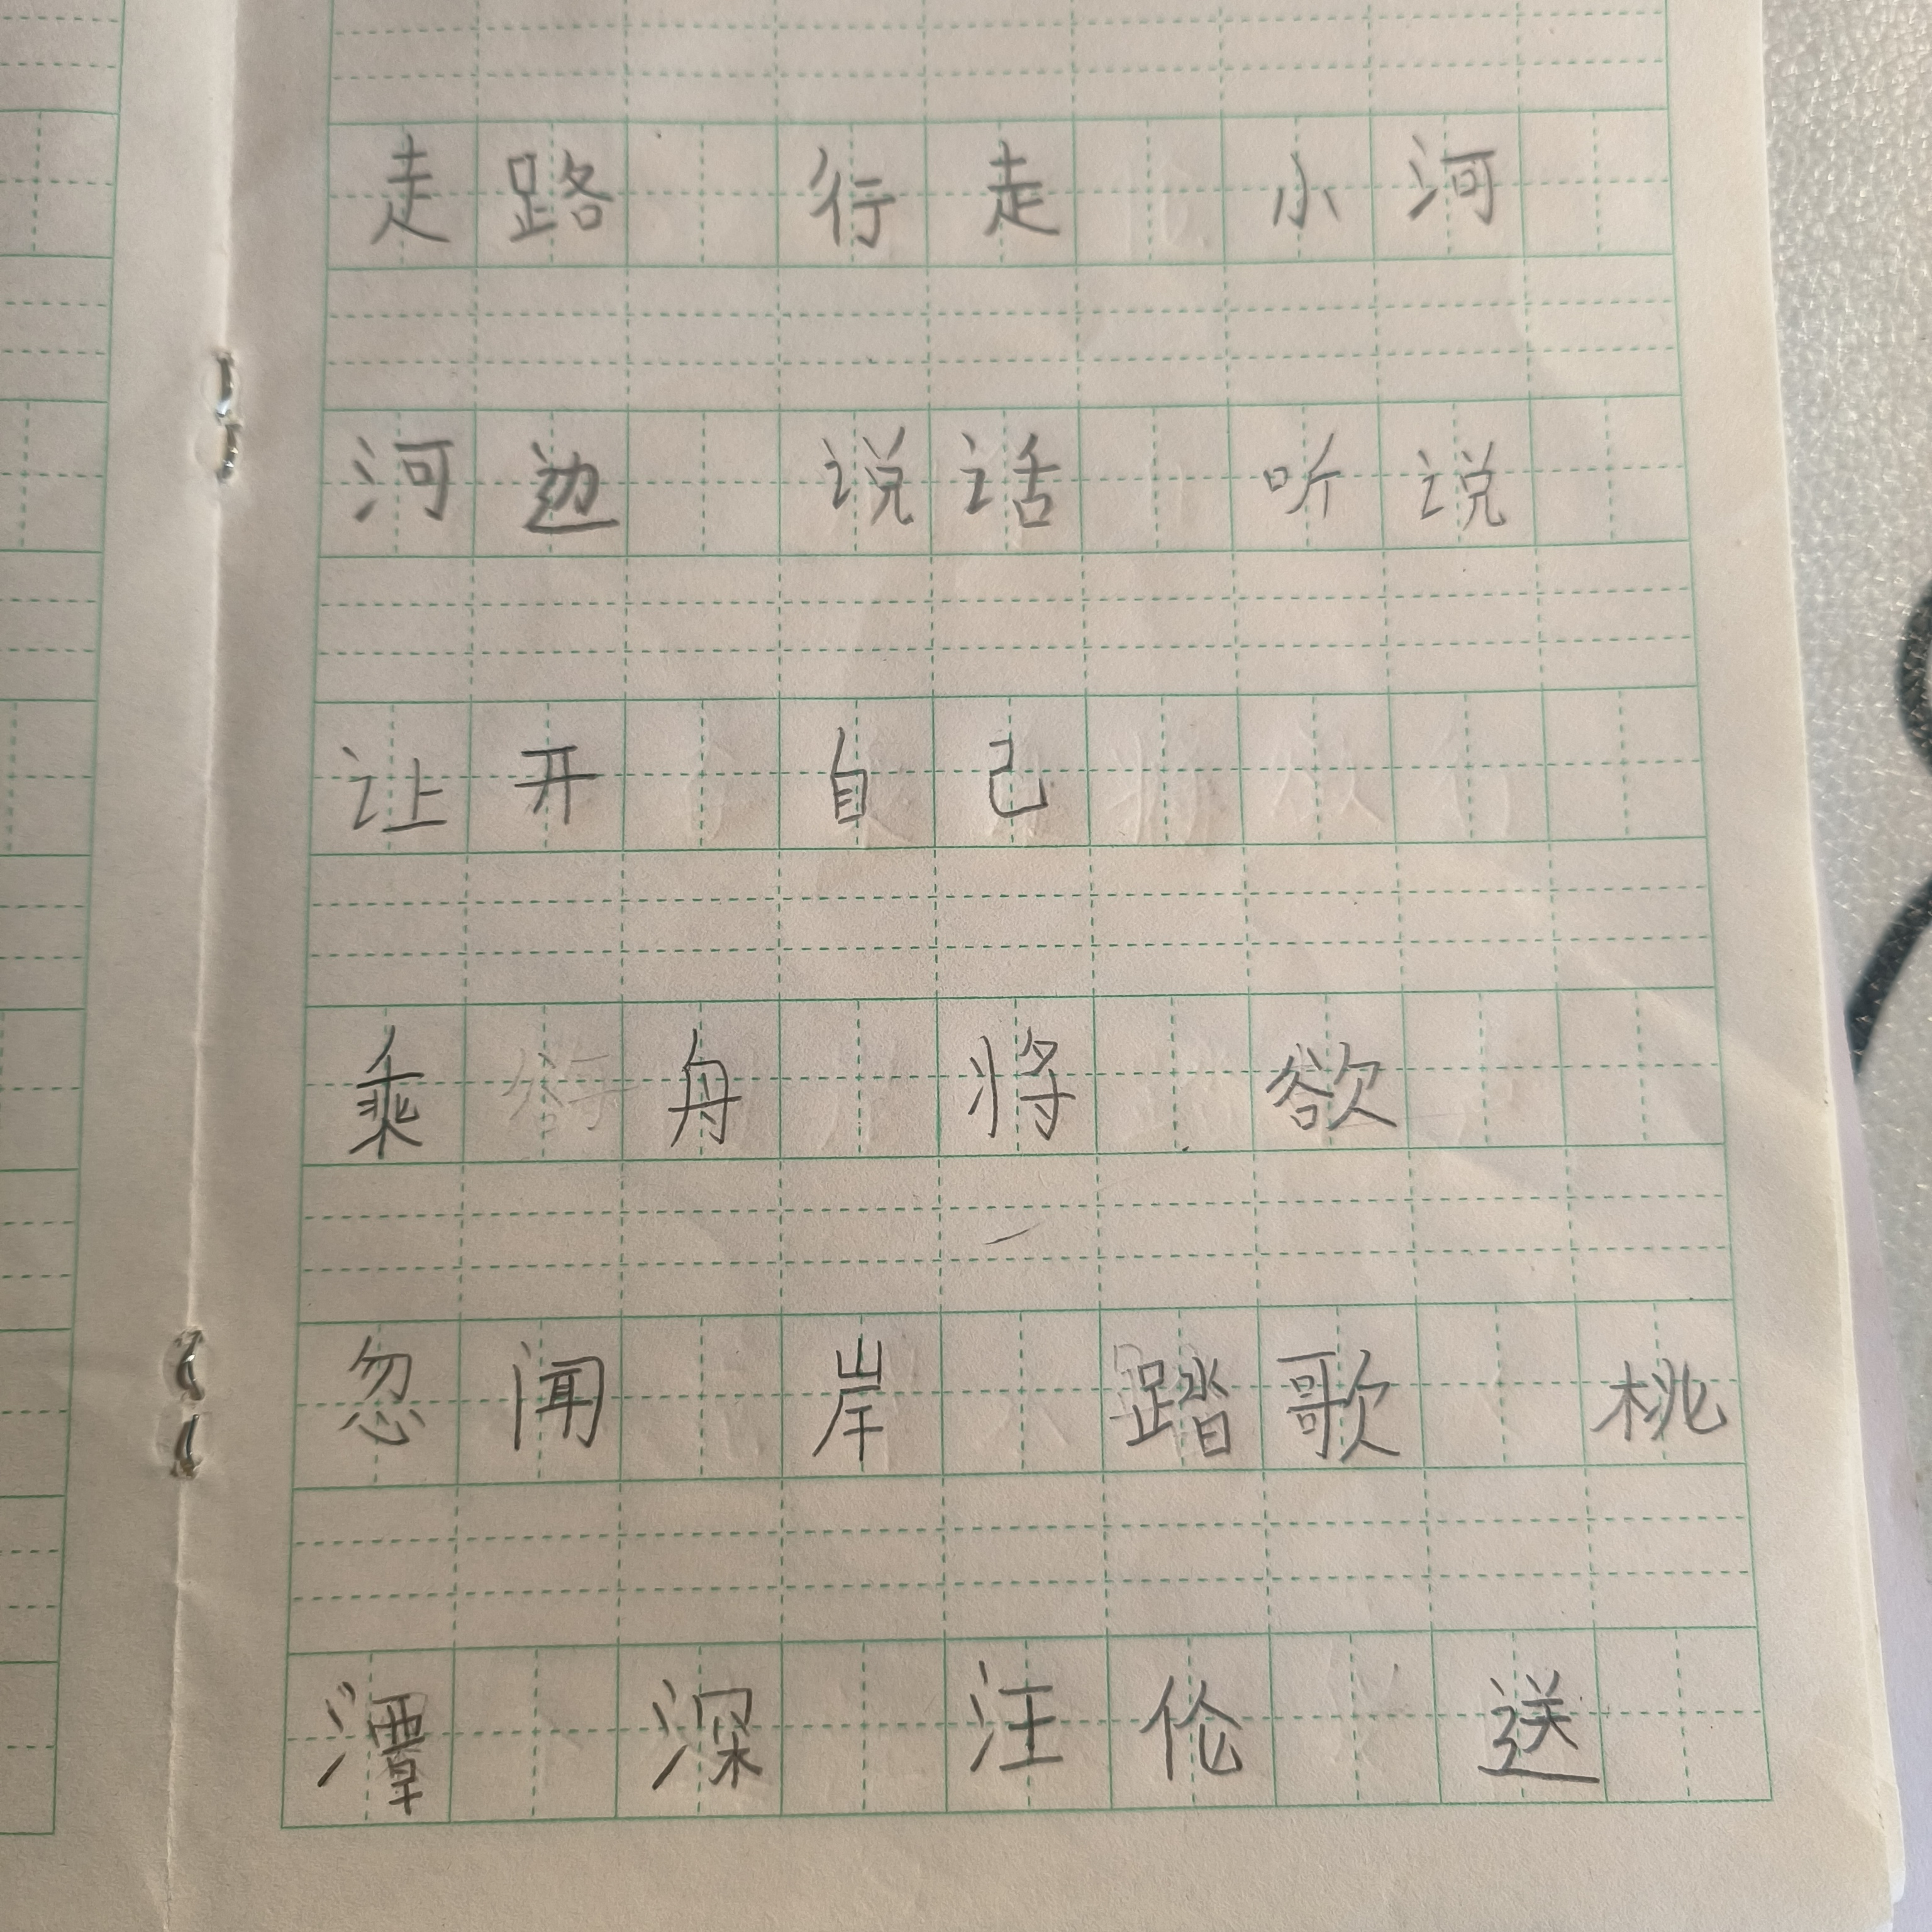 走路 行走 小河
河边 说话 听说
让开 自己
乘 舟 将 欲
忽闻 岸 踏歌 桃
潭 深 汪伦 送